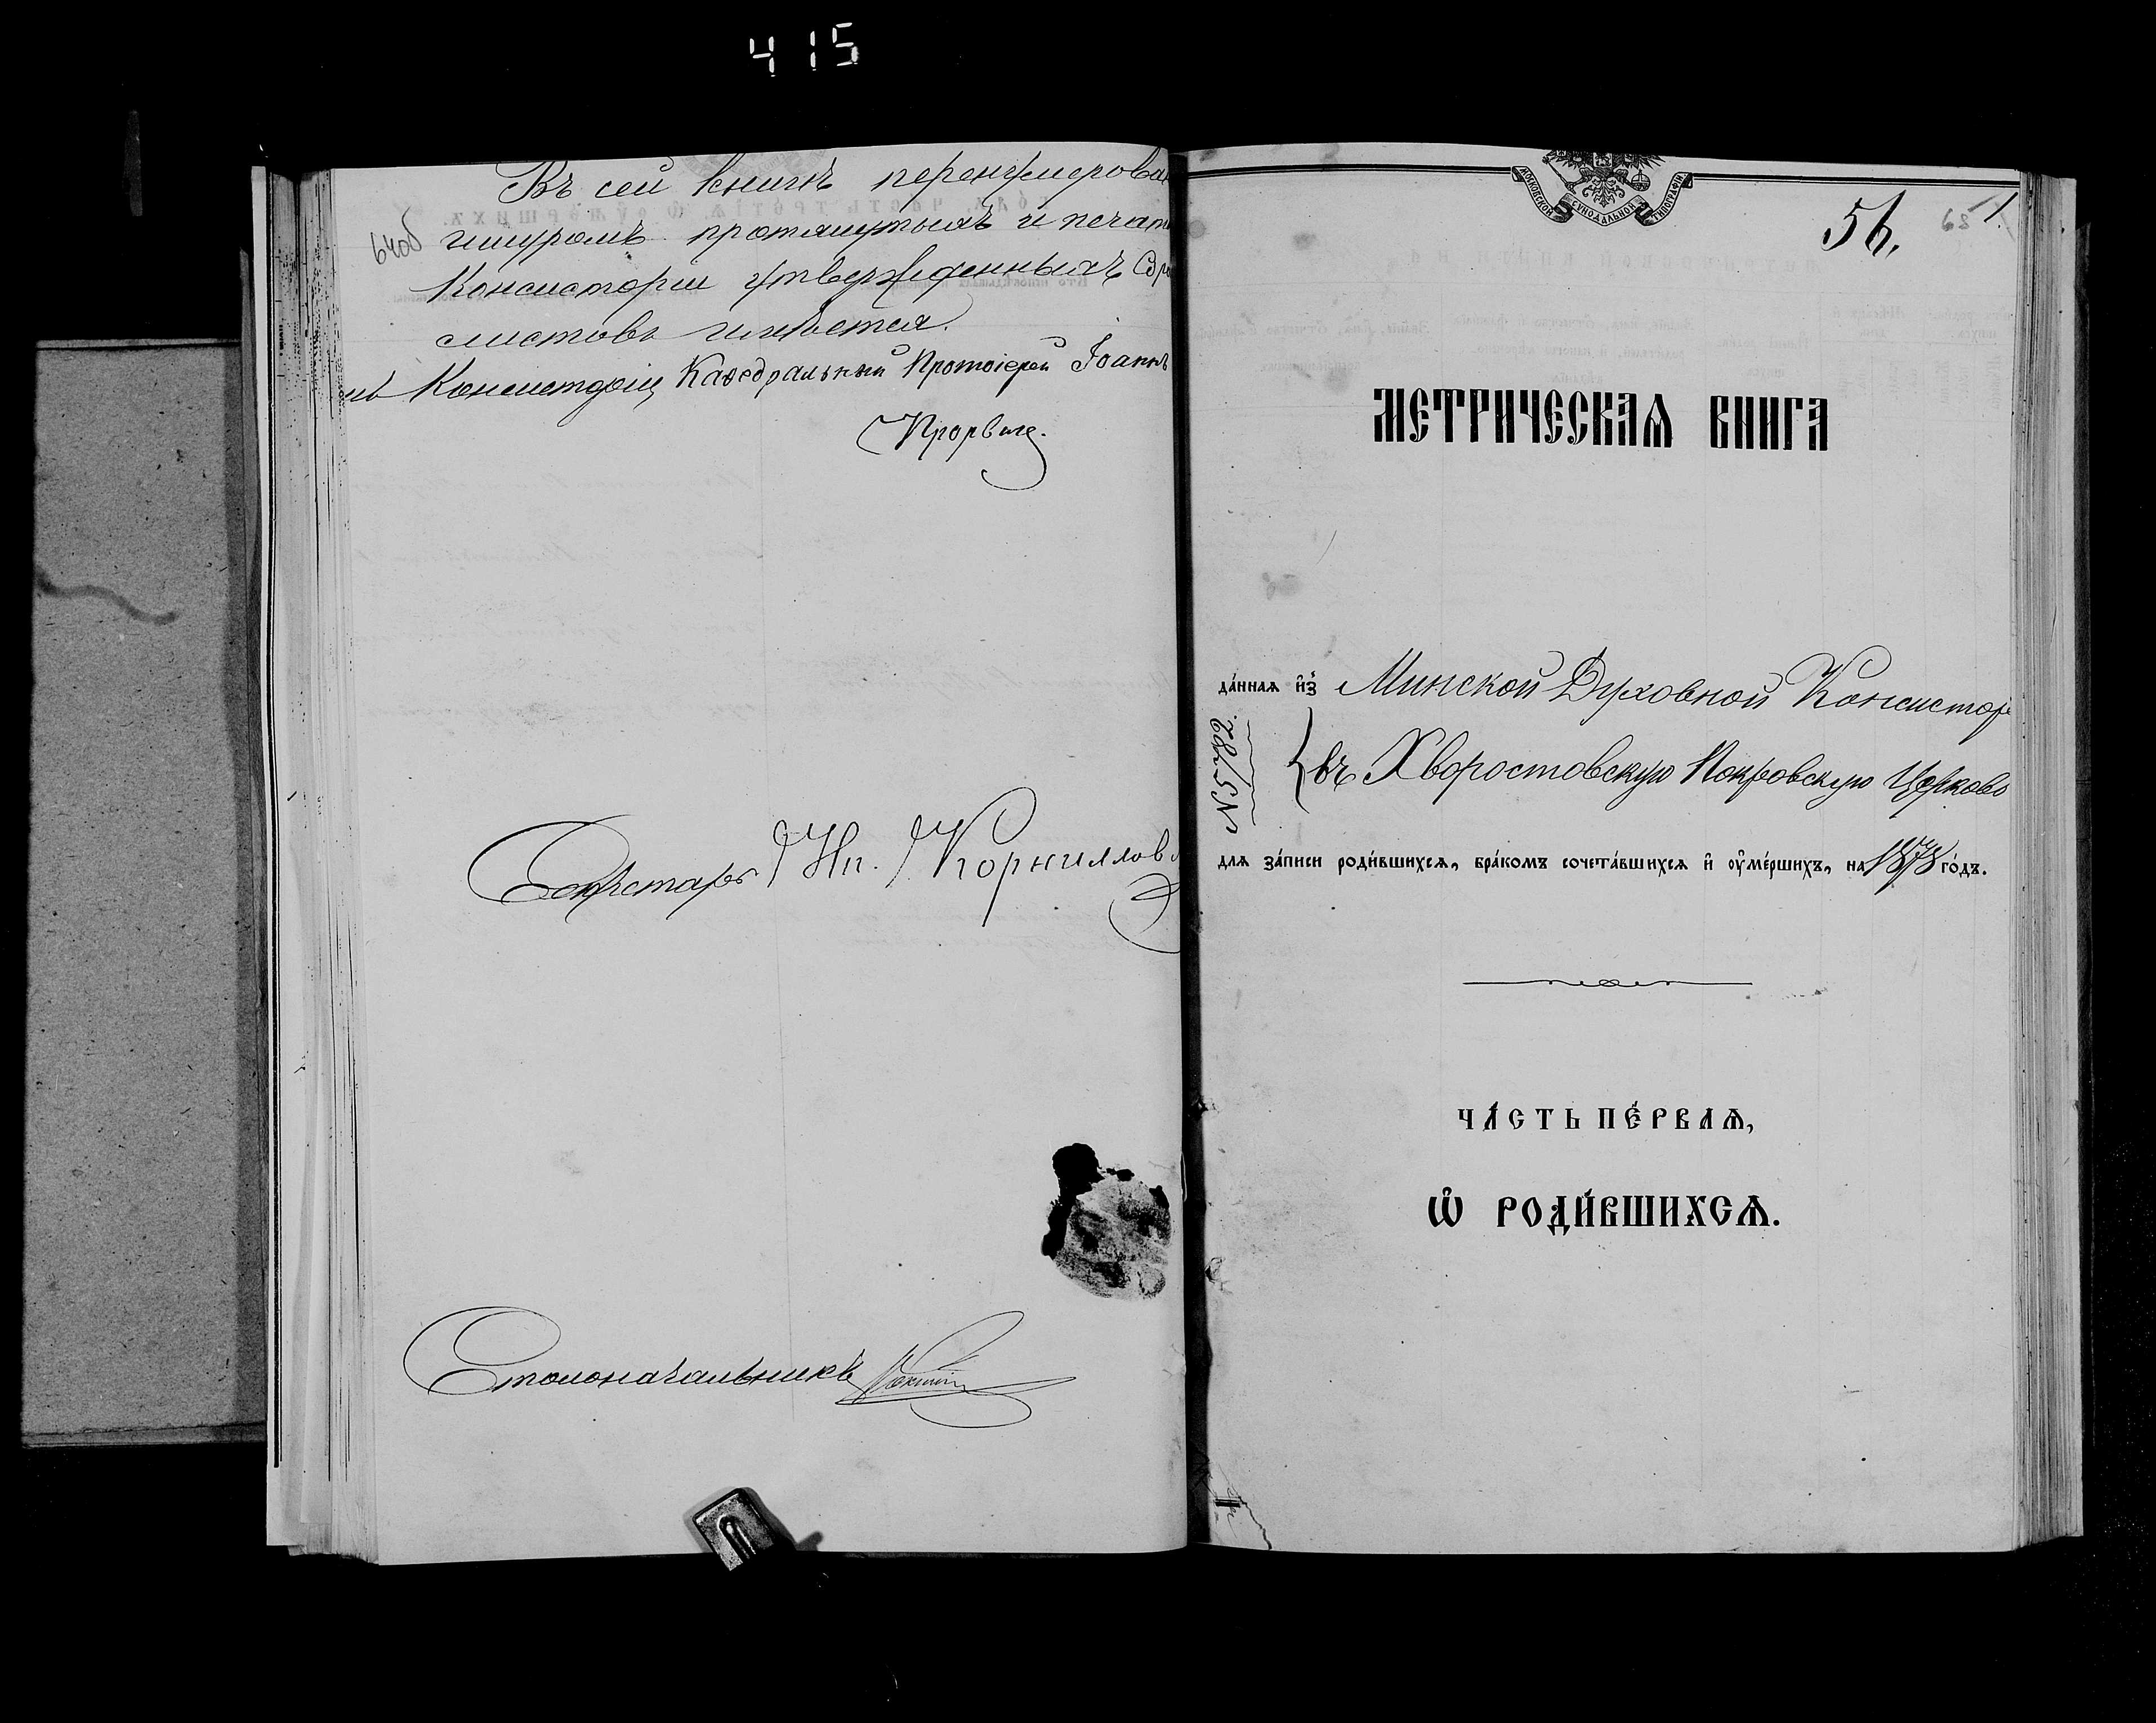 415
Въ сей книгѣ перенумерова
64об
шнуромъ протянутыхъ и печат
Консисторіи утвержденныхъ
листовъ имѣется.
Консисторіи Каѳедральный Протоіерей Іоаннъ
Секретарь Ип. Корнилов
Столоначальникъ
МОСКОВСКОЙ СѴНОДАЛЬНОЙ ТИПОГРАФІИ
56.
65
1.
МЕТРИЧЕСКАѦ КНИГА
да́ннаѧ и҆з̾ Минской Духовной Консистор
№ 5782.
въ Хворостовскую Покровскую Церковь
длѧ за́писи роди́вшихсѧ, бра́комъ сочета́вшихсѧ и҆ ᲂу҆ме́ршихъ, на 1878 го́дъ.
ЧА́СТЬ ПЕ́РВАѦ,
Ѽ РОДИ́ВШИХСѦ.